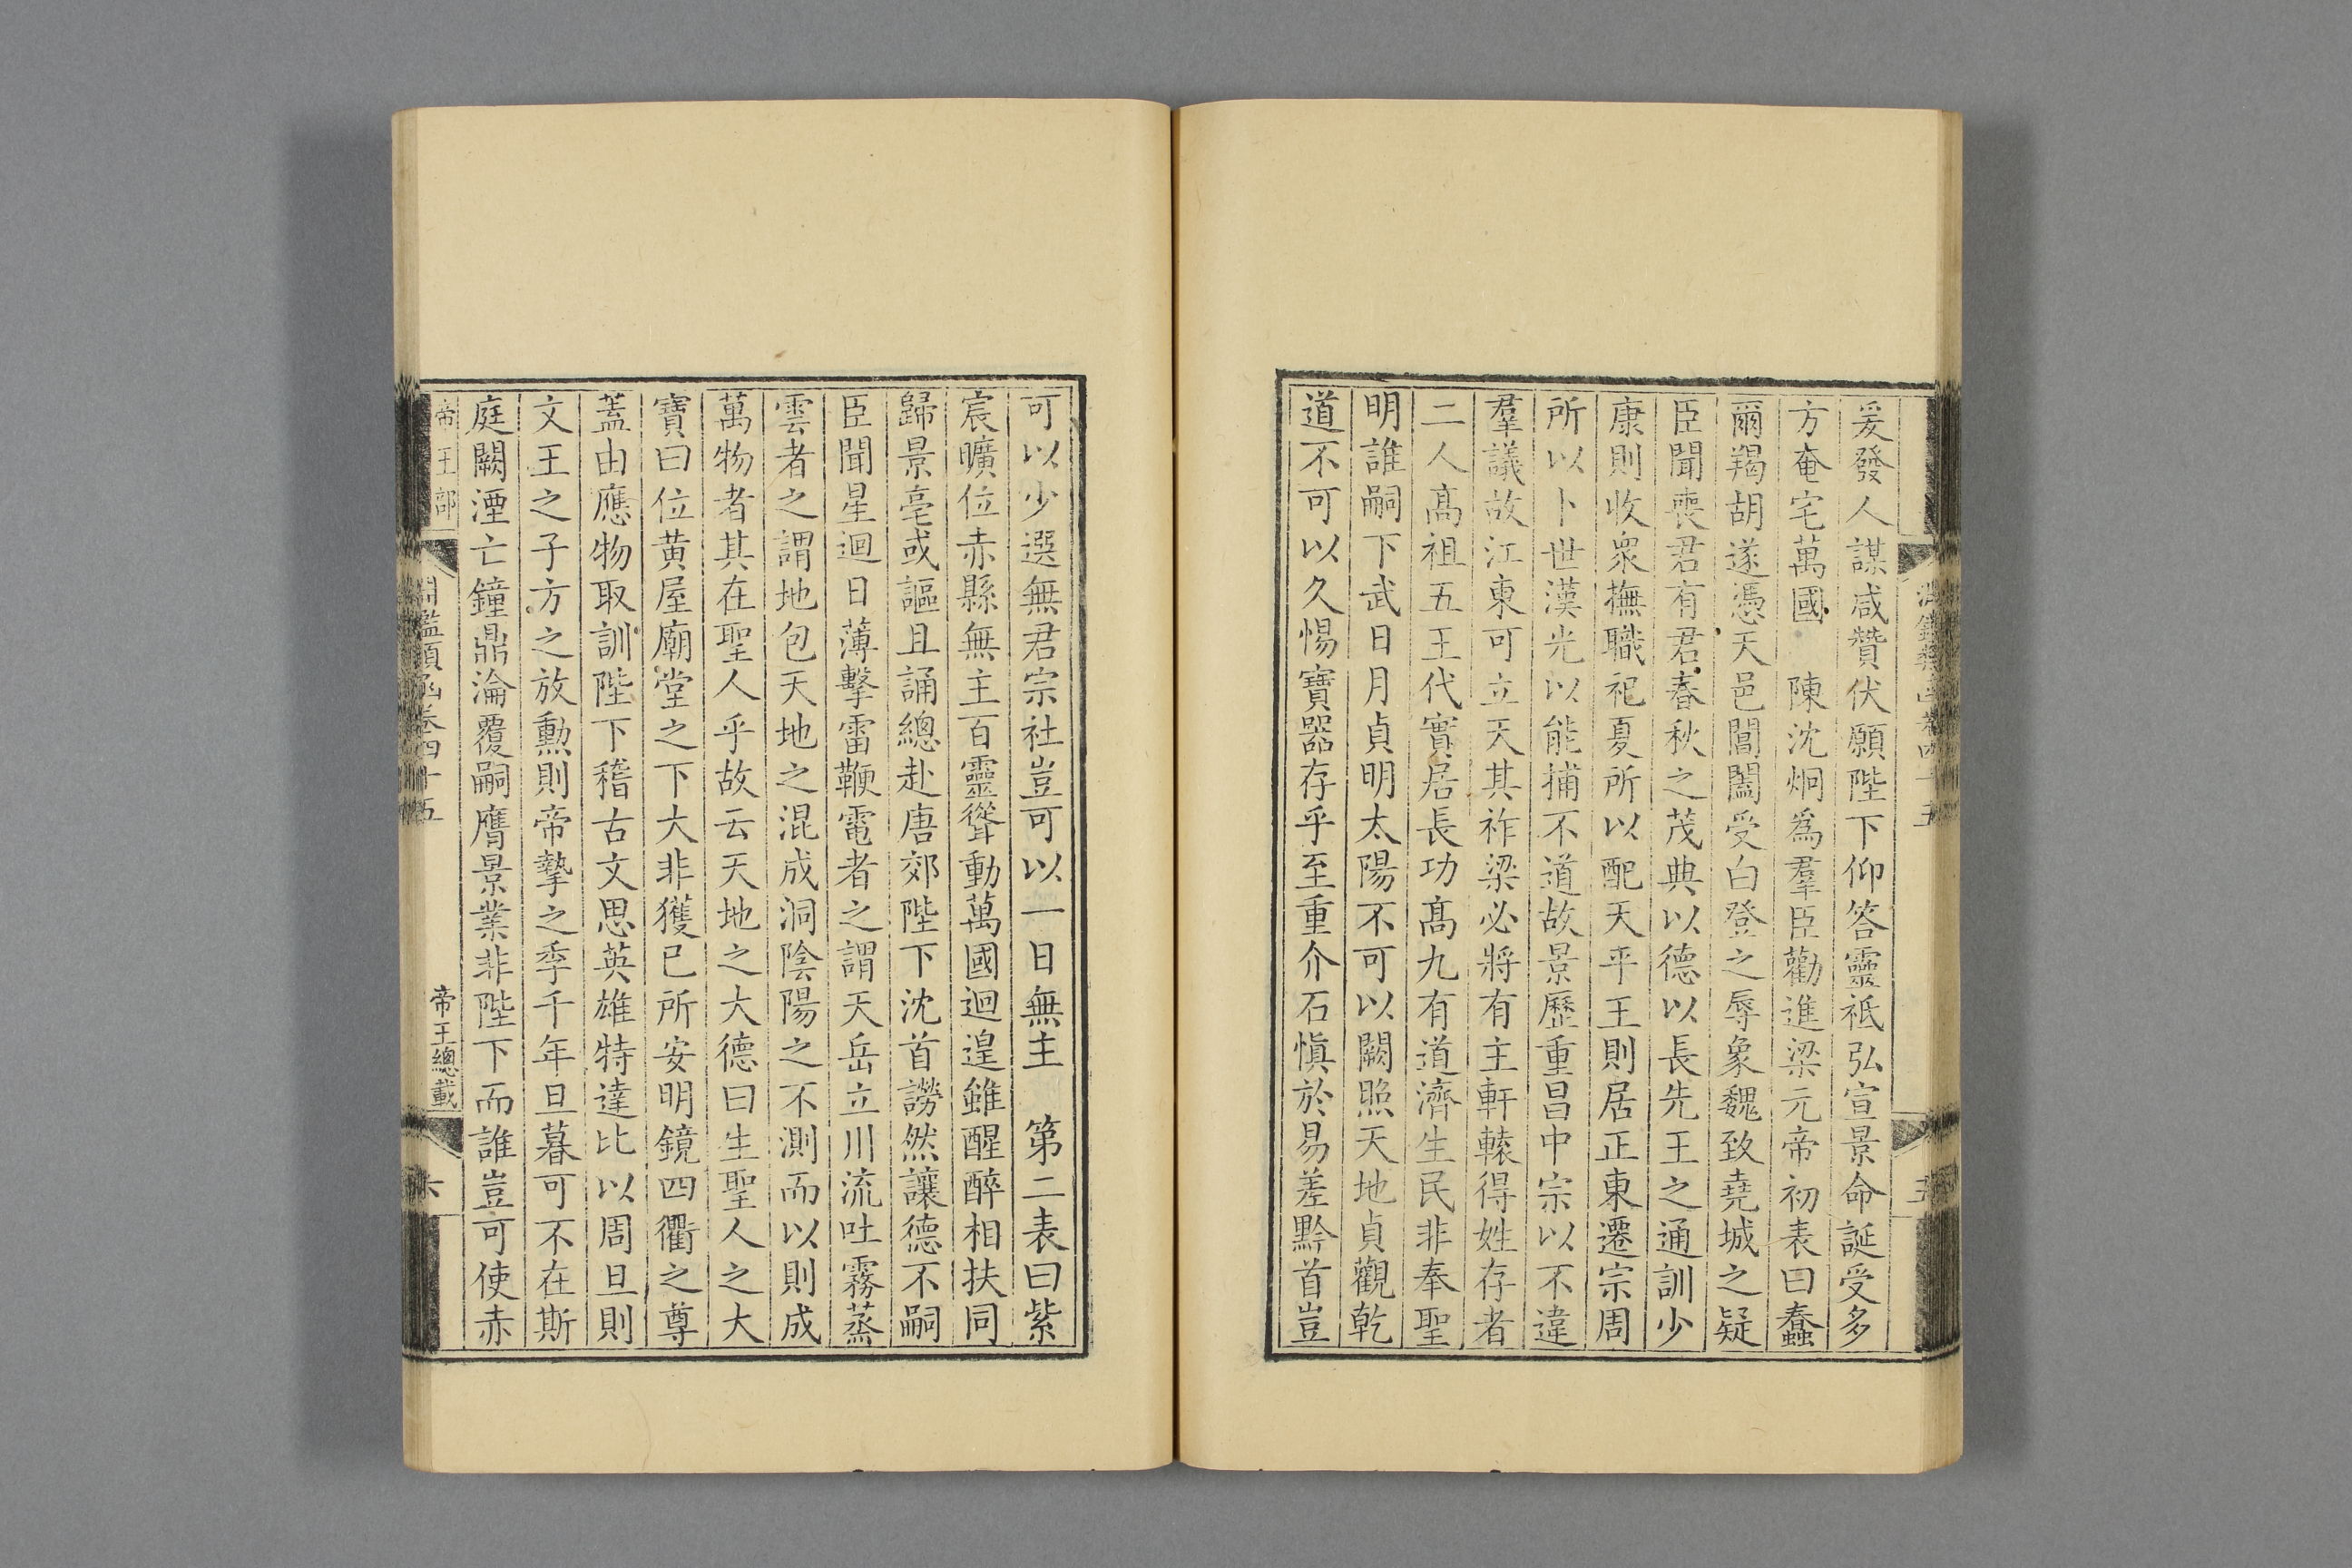 爰發人謀咸贊伏願陛下仰答靈祇弘宣景命誕受多
方奄宅萬國　陳沈炯為羣臣勸進梁元帝初表曰蠢
爾羯胡遂憑天邑閶闔受白登之辱象魏致堯城之疑
臣聞喪君有君春秋之茂典以德以長先王之通訓少
康則收衆撫職祀夏所以配天平王則居正東遷宗周
所以卜世漢光以能捕不道故景歷重昌中宗以不違
羣議故江東可立天其祚梁必將有主軒轅得姓存者
二人高祖五王代實居長功高九有道濟生民非奉聖
明誰嗣下武日月貞明太陽不可以闕照天地貞觀乾
道不可以久惕寶器存乎至重介石愼於易差黔首豈
可以少選無君宗社豈可以一日無主　第二表曰紫
宸曠位赤縣無主百靈聳動萬國迴遑雖醒醉相扶同
歸景亳或謳且誦總赴唐郊陛下沈首謗然讓德不嗣
臣聞星迴日薄擊雷鞭電者之謂天岳立川流吐霧蒸
雲者之謂地包天地之混成洞陰陽之不測而以則成
萬物者其在聖人乎故云天地之大德曰生聖人之大
寶曰位黃屋廟堂之下大非獲已所安明鏡四衢之尊
蓋由應物取訓陛下稽古文思英雄特達比以周旦則
文王之子方之放勳則帝摯之季千年旦暮可不在斯
庭闕湮亡鐘鼎淪覆嗣膺景業非陛下而誰豈可使赤
帝王部
淵鑑類函卷四十五
帝王總載
六